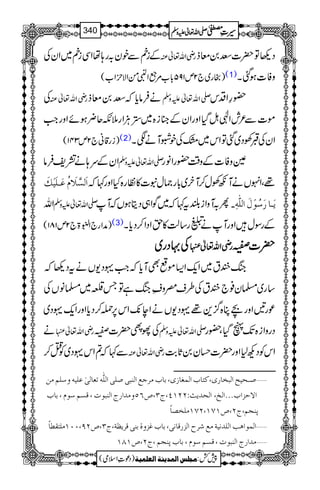 سیرتِ مصطفیٰ صلی اللہ تعالیٰ علیہ وسلم 340
دیکھا تو حضرت سعد بن معاذ رضی اللہ تعالیٰ عنہ کے زخم سے خون بہہ رہا تھا اسی زخم میں ان کی
وفات ہو گئی۔ (1) (بخاری ج۲ ص۵۹۱ باب مرجع النبی من الاحزاب)
حضورِ اقدس صلی اللہ تعالیٰ علیہ وسلم نے فرمایا کہ سعد بن معاذ رضی اللہ تعالیٰ عنہ کی
موت سے عرشِ الٰہی ہل گیا اور ان کے جنازہ میں ستر ہزار ملائکہ حاضر ہوئے اور جب
ان کی قبر کھودی گئی تو اس میں مشک کی خوشبو آنے لگی۔ (2) (زرقانی ج۲ ص۱۴۳)
عین وفات کے وقت حضورِ انور صلی اللہ تعالیٰ علیہ وسلم ان کے سرہانے تشریف فرما
تھے، انہوں نے آنکھ کھول کر آخری بار جمالِ نبوت کا نظارہ کیا اور کہا کہ اَلسَّلَامُ عَلَيْكَ
يَا رَسُوْلَ اللّٰهِ پھر بہ آواز بلند کہا کہ میں گواہی دیتا ہوں کہ آپ صلی اللہ تعالیٰ علیہ وسلم اللہ
کے رسول ہیں اور آپ نے تبلیغِ رسالت کا حق ادا کر دیا۔ (3) (مدارج النبوۃ ج۲ ص۱۸۱)
حضرت صفیہ رضی اللہ تعالیٰ عنہا کی بہادری
جنگِ خندق میں ایک ایسا موقع بھی آیا کہ جب یہودیوں نے یہ دیکھا کہ
ساری مسلمان فوج خندق کی طرف مصروفِ جنگ ہے تو جس قلعہ میں مسلمانوں کی
عورتیں اور بچے پناہ گزین تھے یہودیوں نے اچانک اس پر حملہ کر دیا اور ایک یہودی
دروازہ تک پہنچ گیا حضور صلی اللہ تعالیٰ علیہ وسلم کی پھوپھی حضرت صفیہ رضی اللہ تعالیٰ عنہا نے
اس کو دیکھ لیا اور حضرت حسان بن ثابت رضی اللہ تعالیٰ عنہ سے کہا کہ تم اس یہودی کو قتل کر
صحیح البخاری، کتاب المغازی، باب مرجع النبی صلی اللّٰہ تعالیٰ علیہ وسلم من
الاحزاب...الخ، الحدیث:۴۱۲۲، ج۳، ص۵۶ ومدارج النبوت، قسم سوم، باب
پنجم، ج۲، ص۱۷۱،۱۷۲ملخصاً
المواهب اللدنیة مع شرح الزرقانی، باب غزوة بنی قریظة، ج۳، ص۹۲، ۱۰۰ملتقطاً
مدارج النبوت، قسم سوم، باب پنجم، ج۲، ص۱۸۱
پیش کش: مجلس المدینة العلمیة (دعوتِ اسلامی)